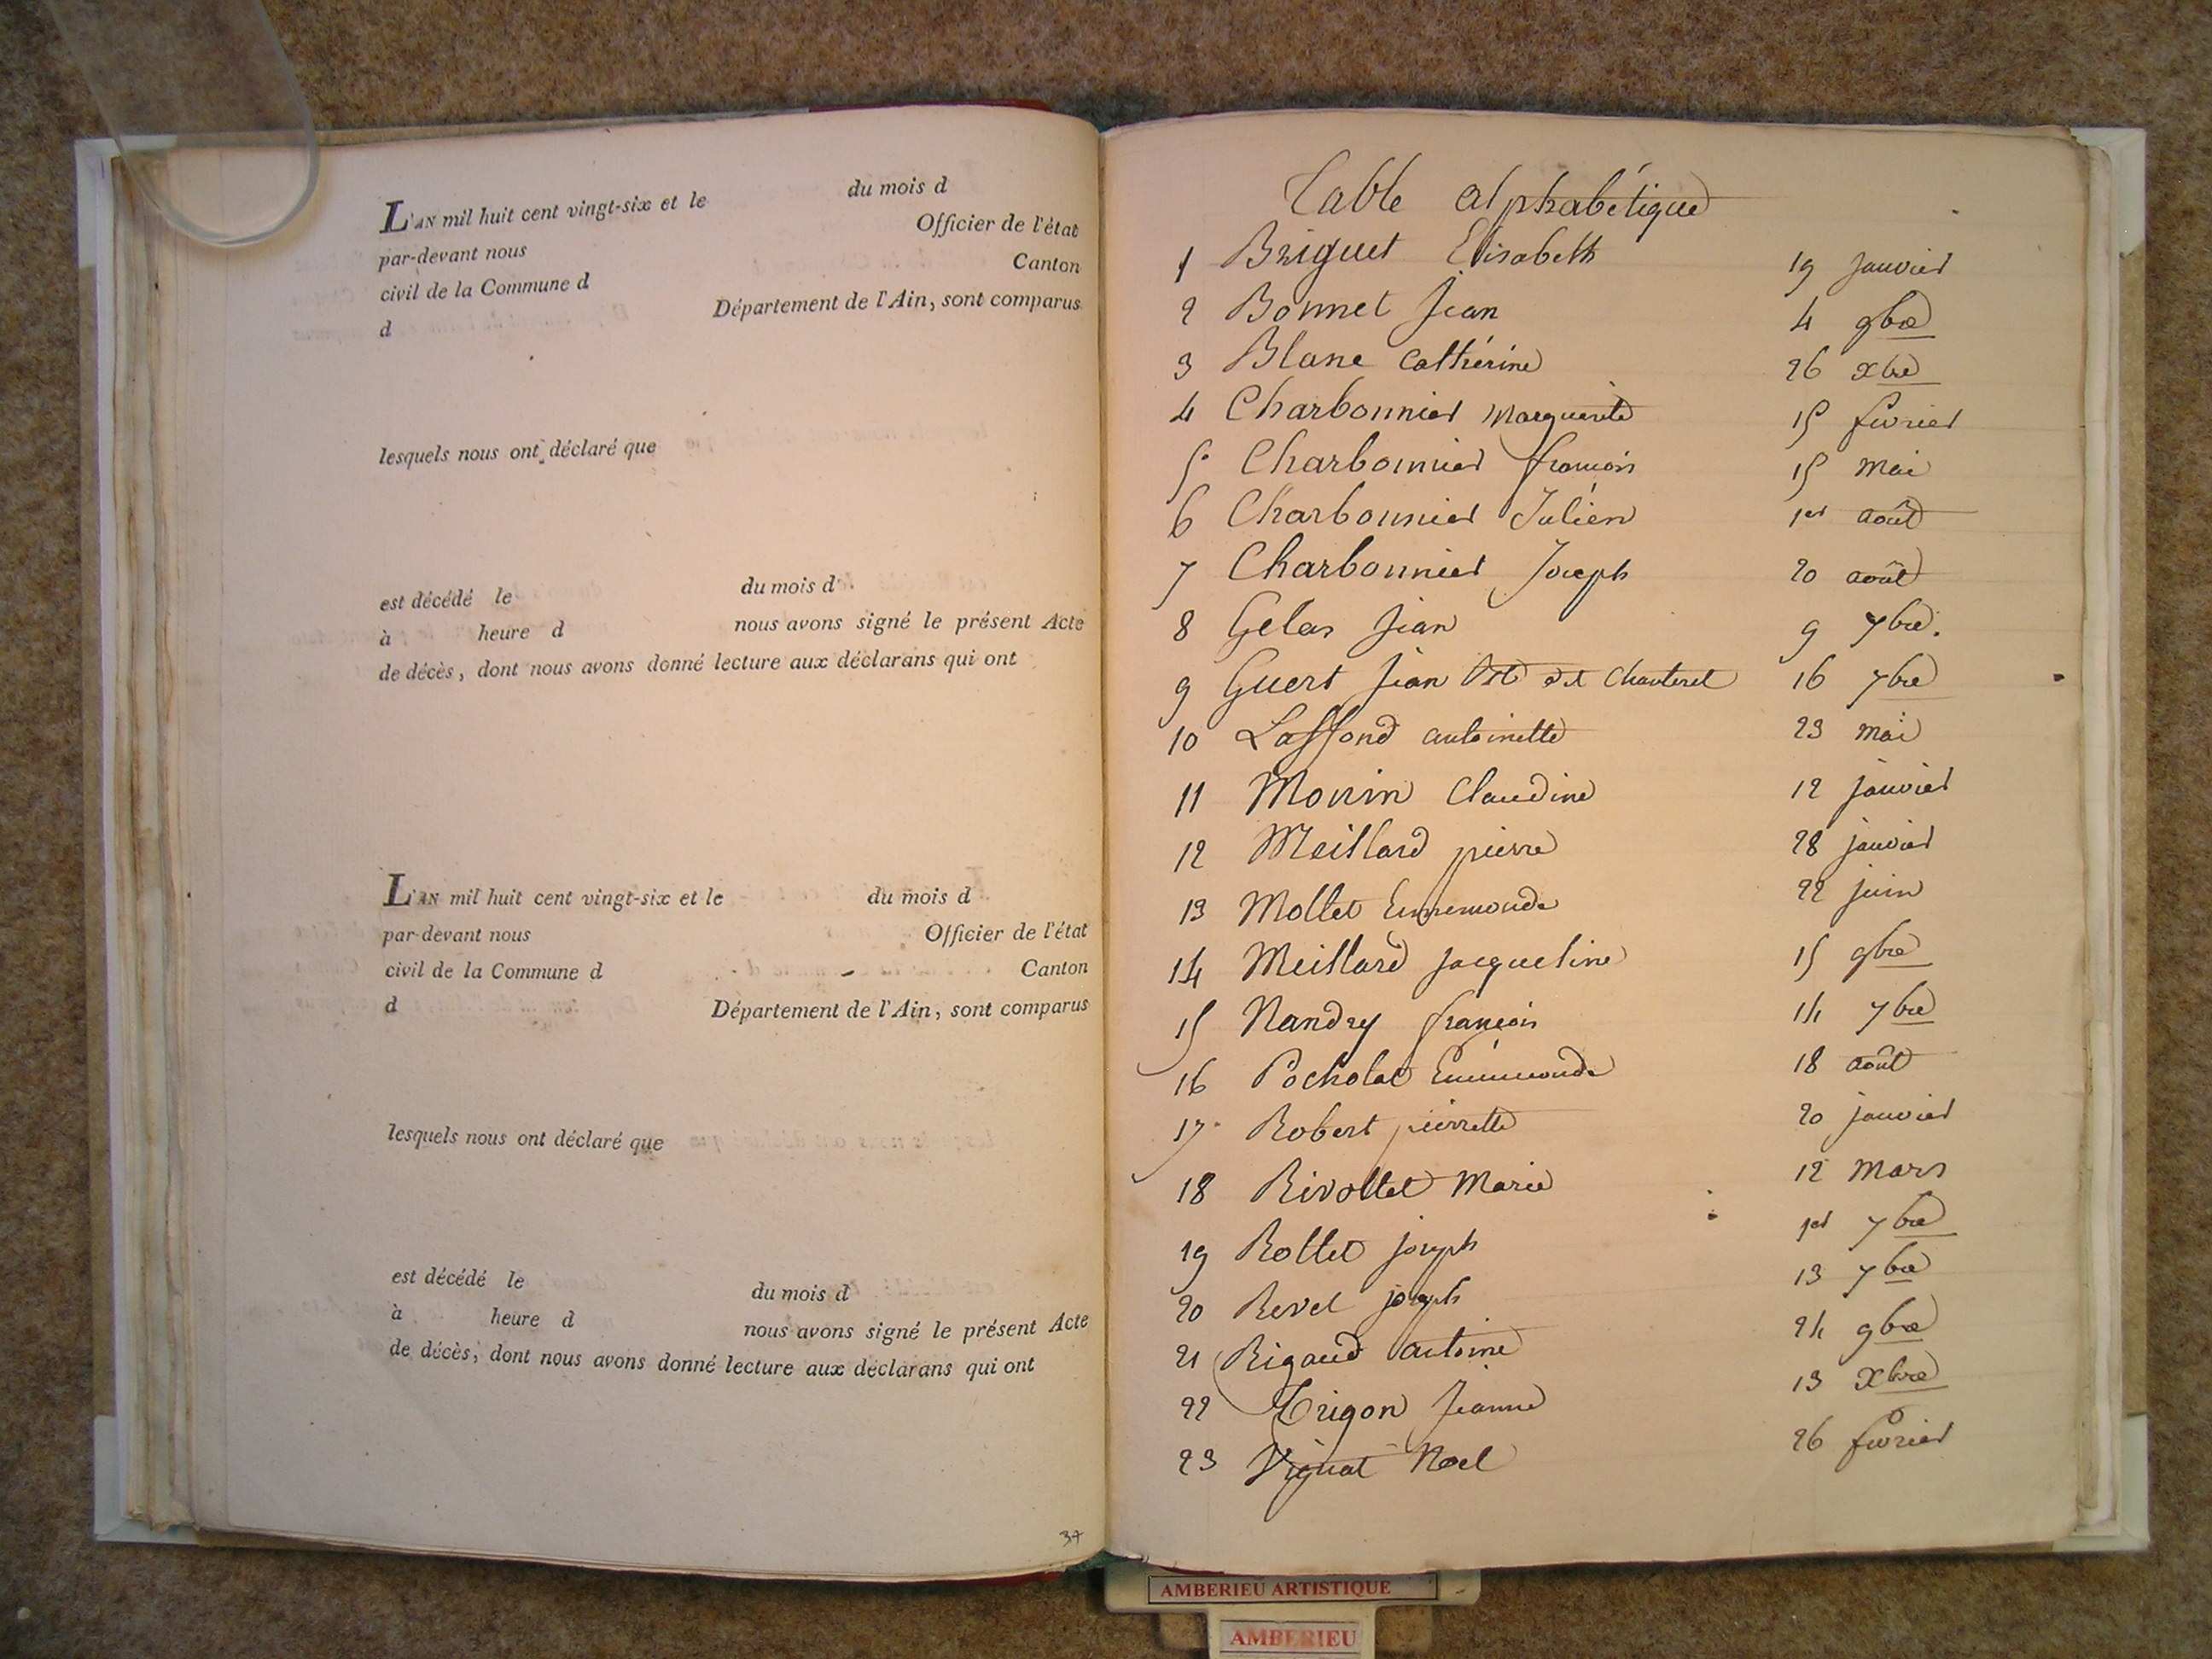 L'AN mil huit cent vingt-six et le du mois d
par-devant nous Officier de l'état
civil de la Commune d Canton
d Département de l'Ain, sont comparus
lesquels nous ont déclaré que
est décédé le du mois d
à heure d nous avons signé le présent Acte
de décès, dont nous avons donné lecture aux déclarans qui ont
L'AN mil huit cent vingt-six et le du mois d
par-devant nous Officier de l'état
civil de la Commune d Canton
d Département de l'Ain, sont comparus
lesquels nous ont déclaré que
est décédé le du mois d
à heure d nous avons signé le présent Acte
de décès, dont nous avons donné lecture aux déclarans qui ont
37
Table alphabétique
1 Briguet Elisabeth 19 janvier
2 Bonnet Jean 4 9bre
3 Blanc Cathérine 26 xbre
4 Charbonnier Marguerite 15 février
5 Charbonnier françois 15 mai
6 Charbonnier Julien 1er août
7 Charbonnier Joseph 20 août
8 Gelas Jean 9 7bre.
9 Guert Jean Bte dit Chanteret 16 7bre
10 Laffond antoinette 23 mai
11 Monin Claudine 12 janvier
12 Meillard pierre 28 janvier
13 Mollet Ennemonde 22 juin
14 Meillard jacqueline 15 9bre
15 Nandry françois 14 7bre
16 Pocholat Ennemonde 18 août
17 Robert pierrette 20 janvier
18 Rivollet Marie 12 Mars
19 Rollet joseph 1er 7bre
20 Revel joseph 13 7bre
21 Rigaud antoine 24 9bre
22 Trigon Jeanne 13 xbre
23 Vignat Noel 26 février
AMBERIEU ARTISTIQUE
AMBERIEU